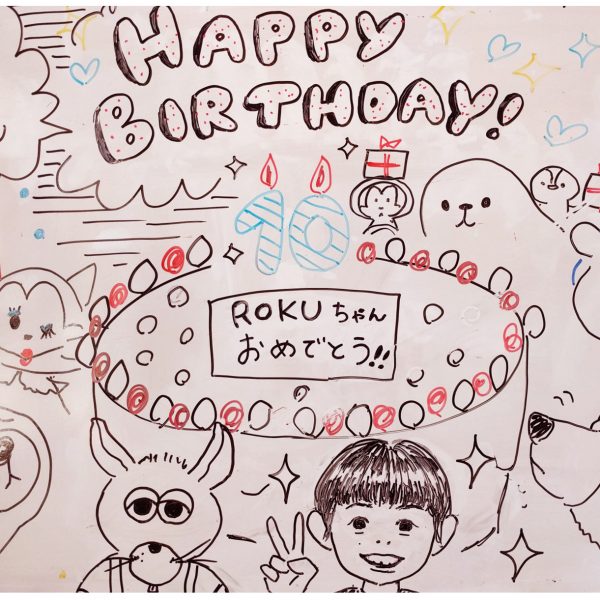 HAPPY
BIRTHDAY!
10
ROKUちゃん
おめでとう!!